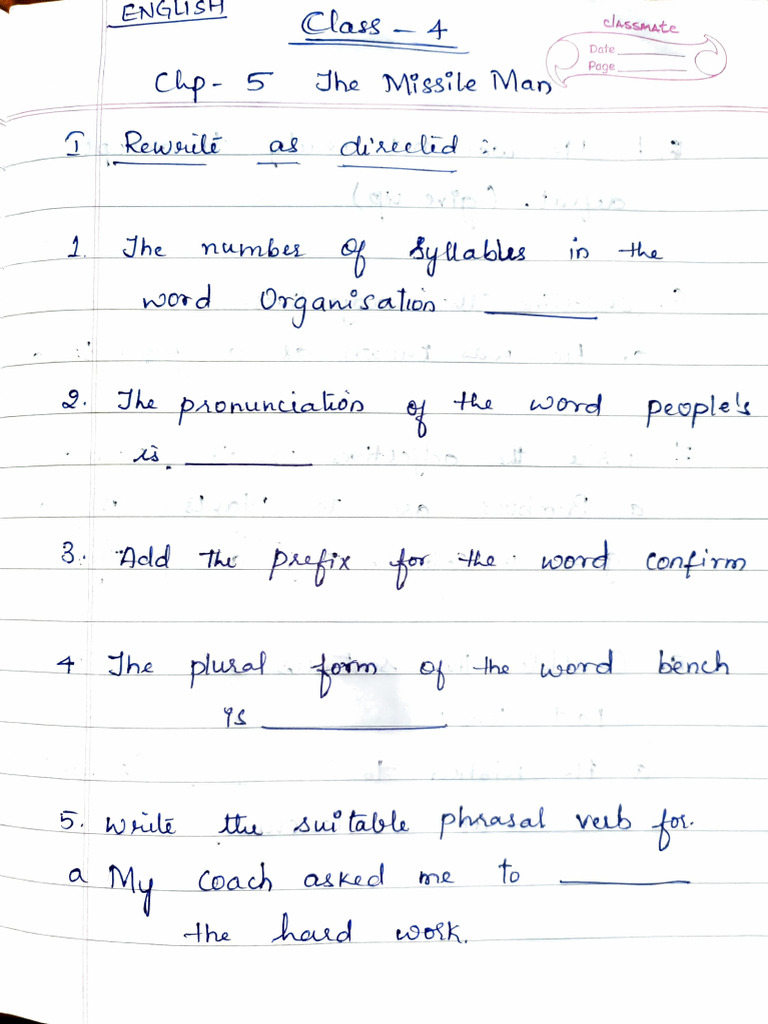 ENGLISH
Class - 4
classmate
Date
Page
Chp - 5 The Missile Man
I Rewrite as directed :.
1. The number of Syllables in the
word Organisation ________
2. The pronunciation of the word people's
is. ________
3. Add the prefix for the word confirm
4 The plural form of the word bench
is ________
5. Write the suitable phrasal verb for.
a My coach asked me to ________
the hard work.